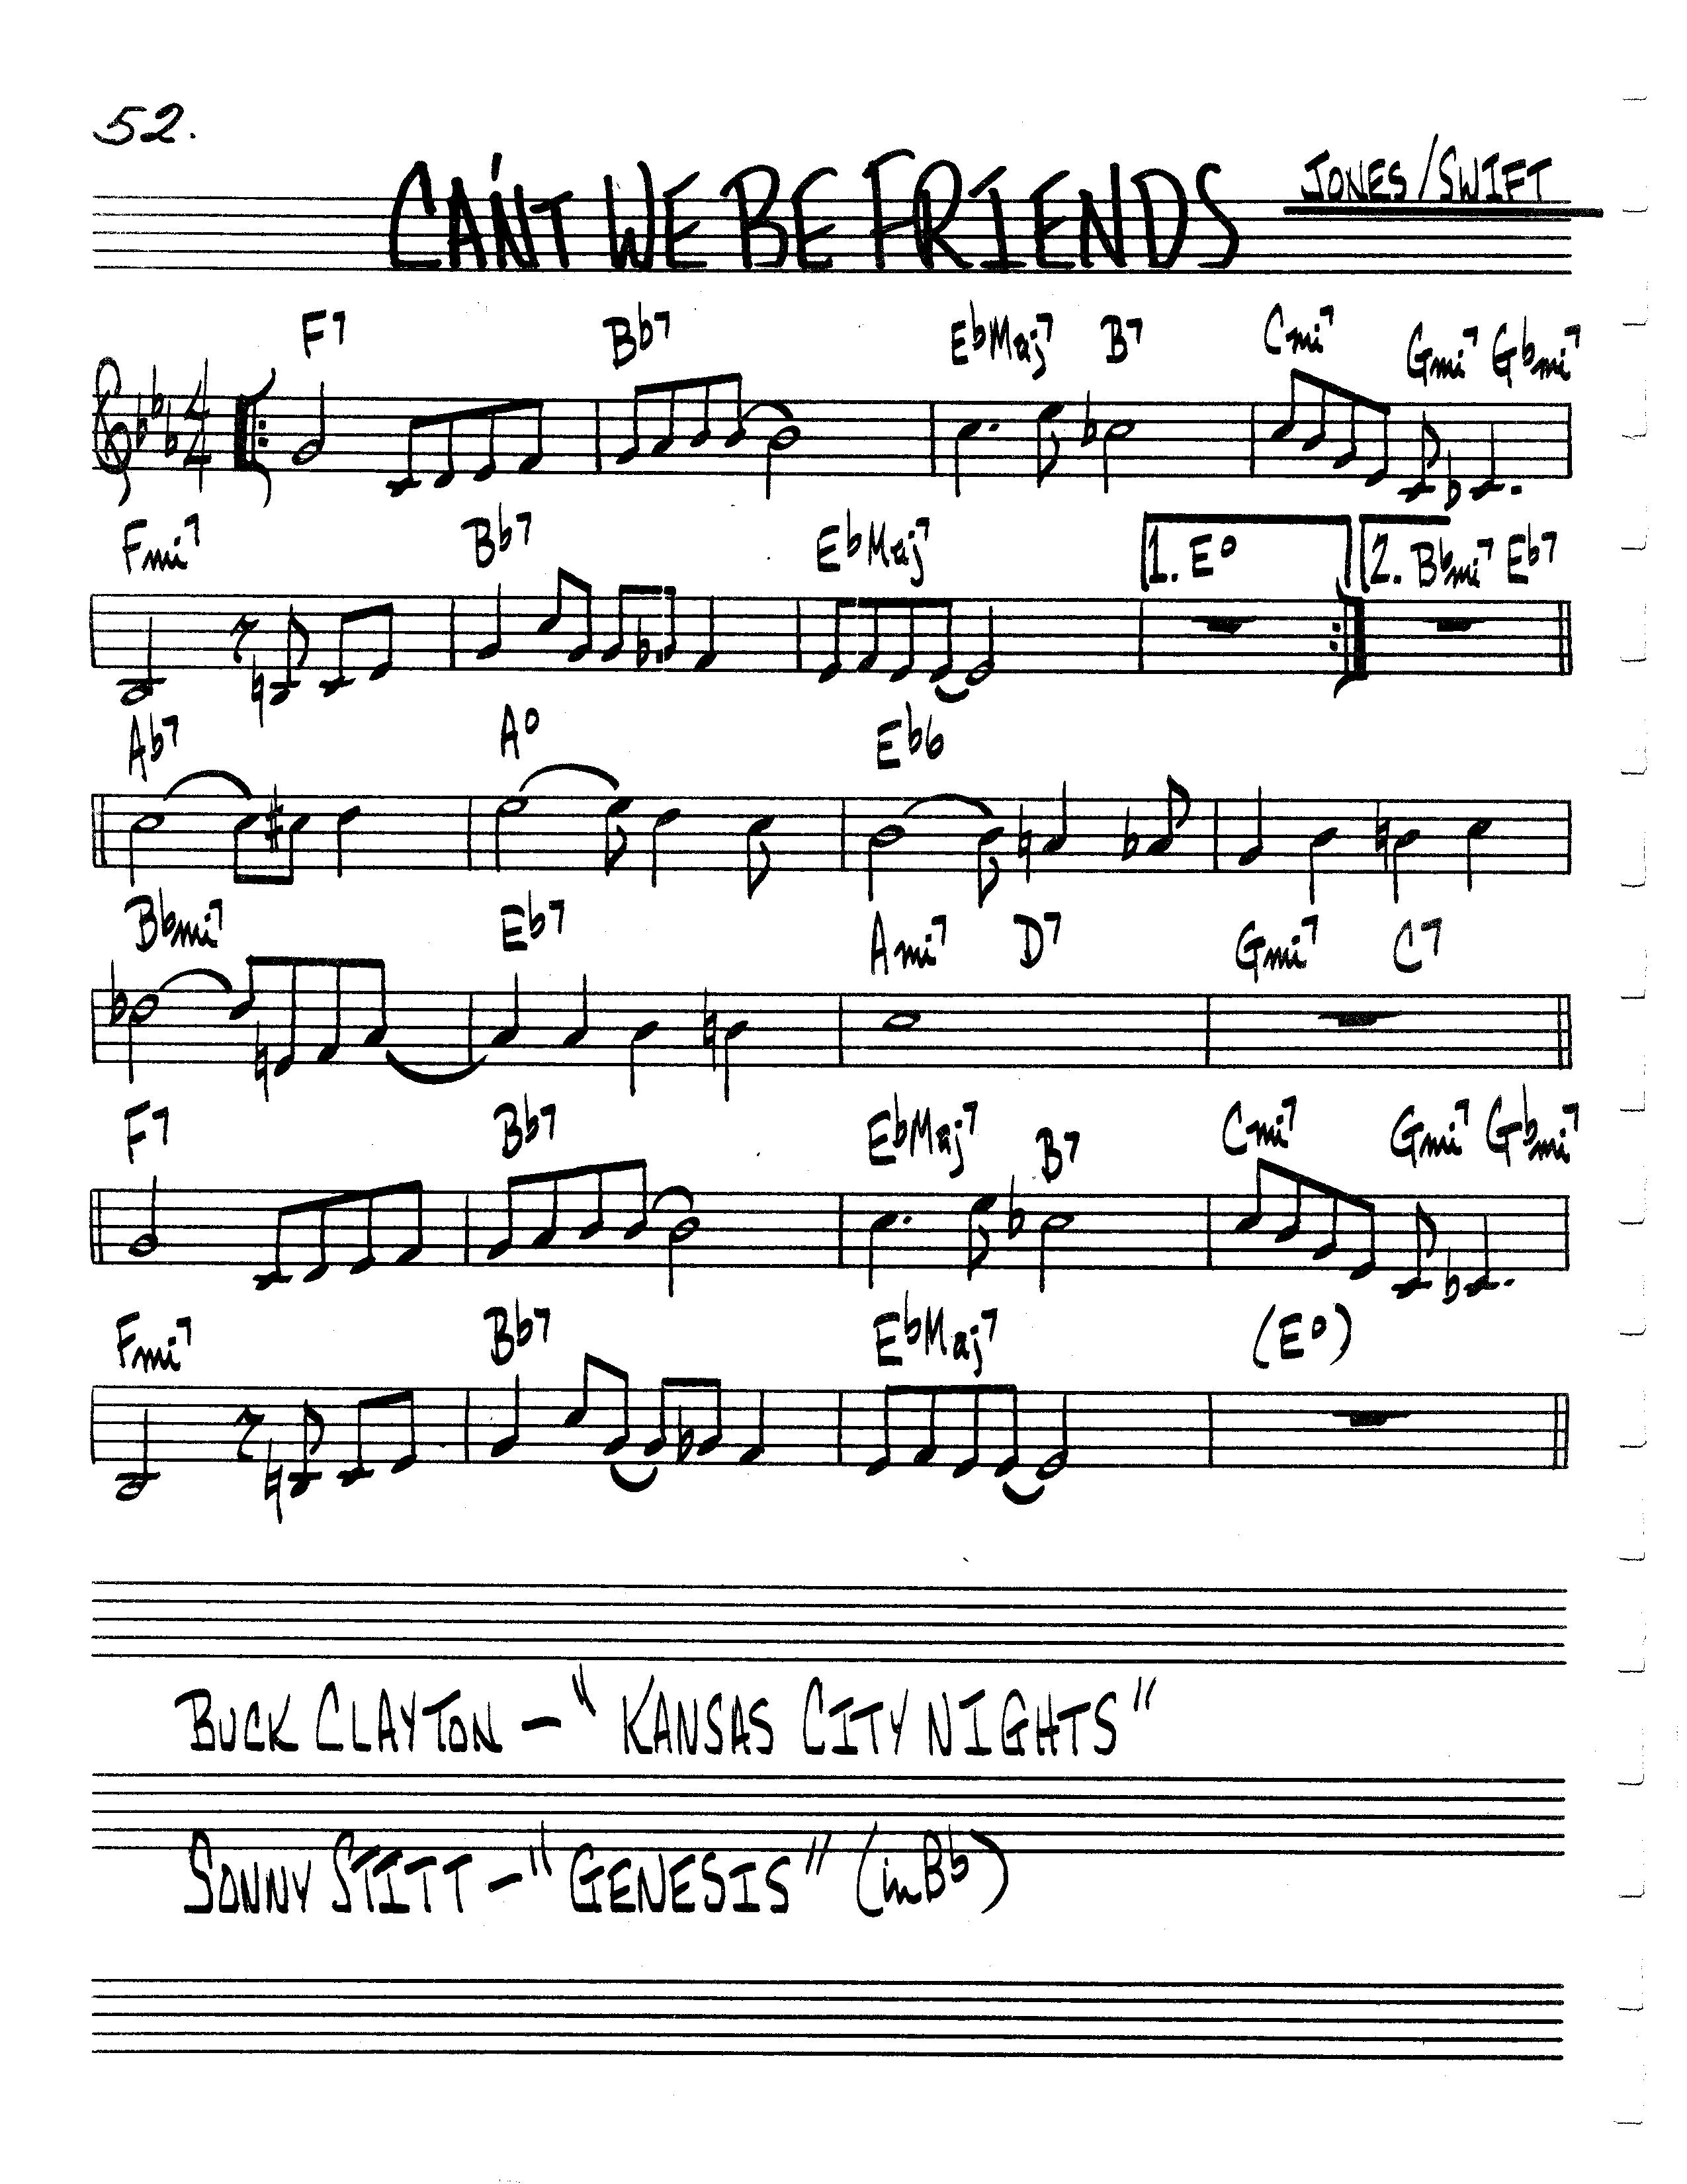 52.
CAN'T WE BE FRIENDS
JONES/SWIFT
F7 Bb7 EbMaj7 B7 Cmi7 Gmi7 Gbmi7
4
4
Fmi7 Bb7 EbMaj7 1. E° 2. Bbmi7 Eb7
Ab7 A° Eb6
Bbmi7 Eb7 Ami7 D7 Gmi7 C7
F7 Bb7 EbMaj7 B7 Cmi7 Gmi7 Gbmi7
Fmi7 Bb7 EbMaj7 (E°)
BUCK CLAYTON – "KANSAS CITY NIGHTS"
SONNY STITT – "GENESIS" (in Bb)